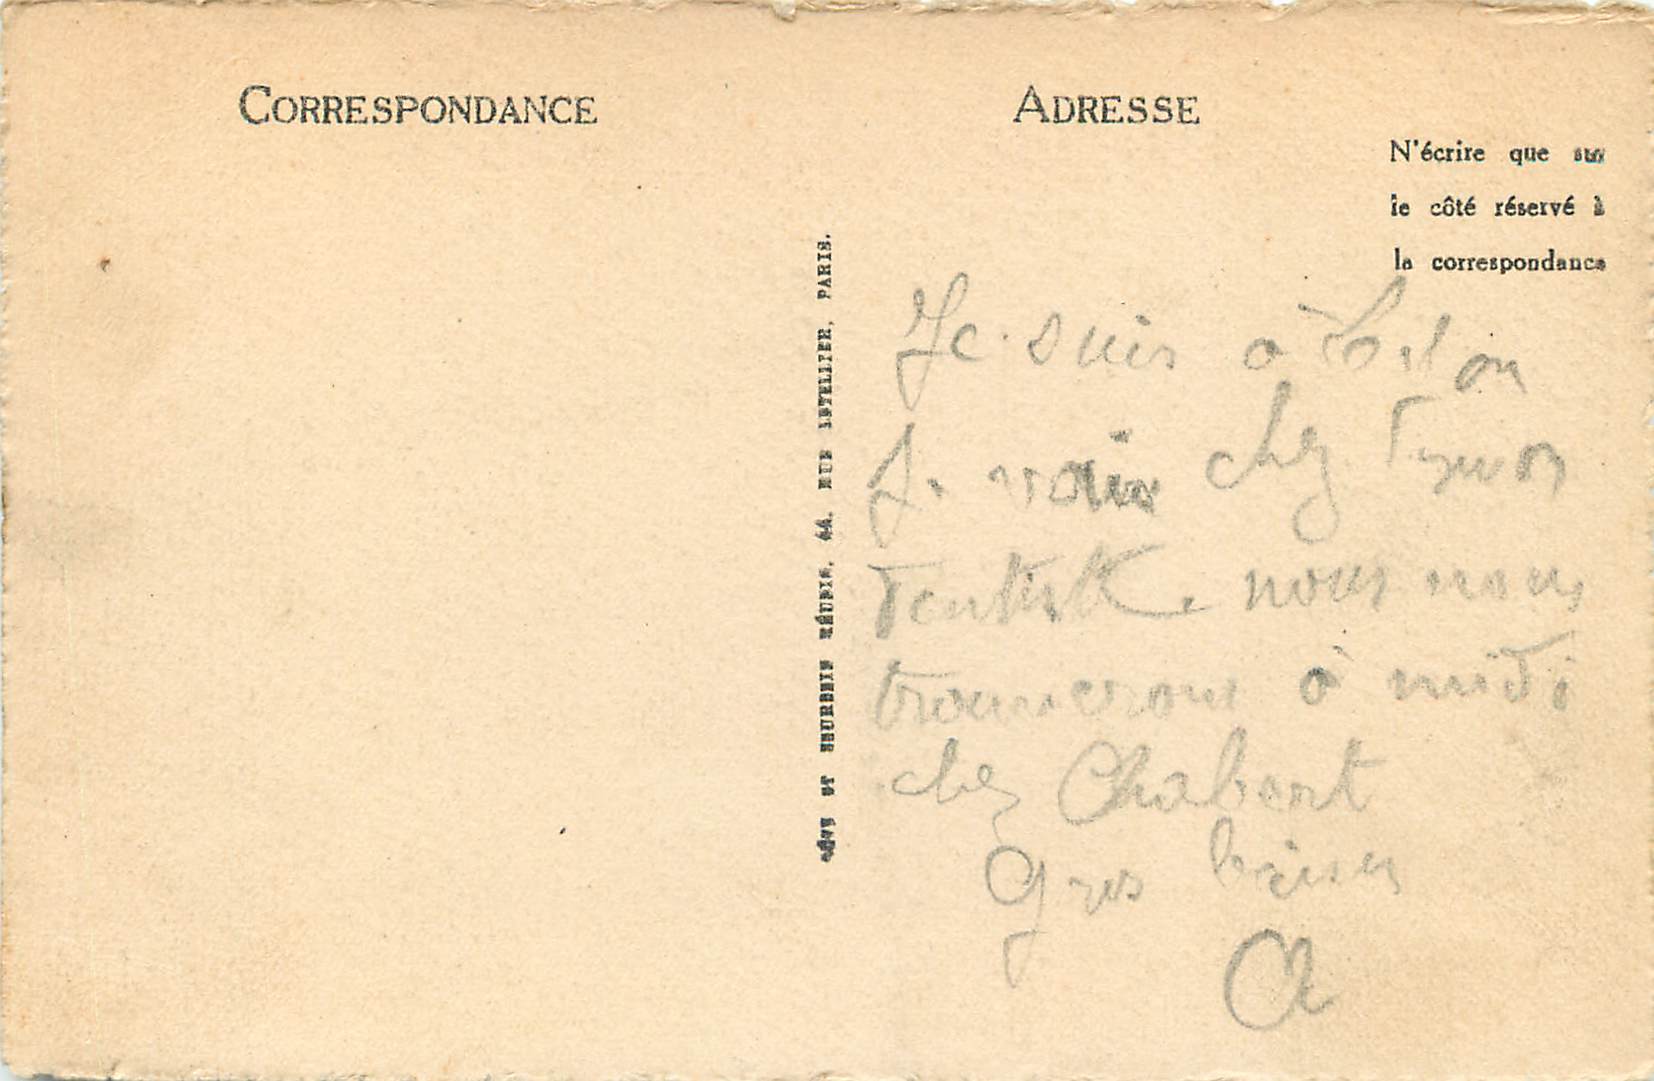 CORRESPONDANCE
ADRESSE
N'écrire que sur
le côté réservé à
la correspondance
LÉVY ET NEURDEIN RÉUNIS, 44, RUE LETELLIER, PARIS.
Je suis à
Je vais chez
dentiste. nous nous
trouverons à midi
chez Chabert
Gros baisers
A